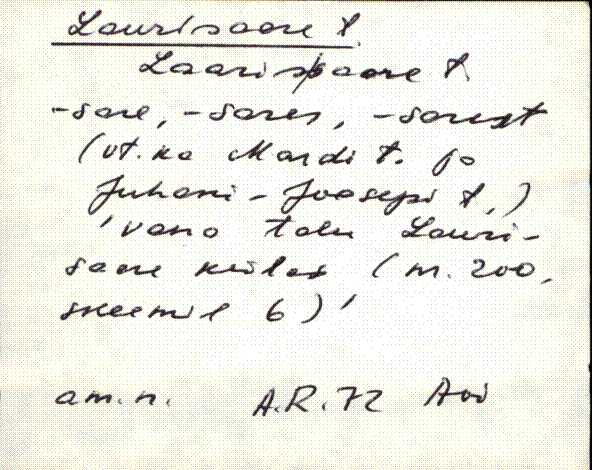 Laurisaare t.
Laurisaare t.
-sare, -sares, -sarest
(vt. ka Mardi t. ja
Juhani-Joosepi t.)
'vana talu Lauri-
saare külas (m. 200,
skeemil 6)'
am.n. A.R.72 Avi